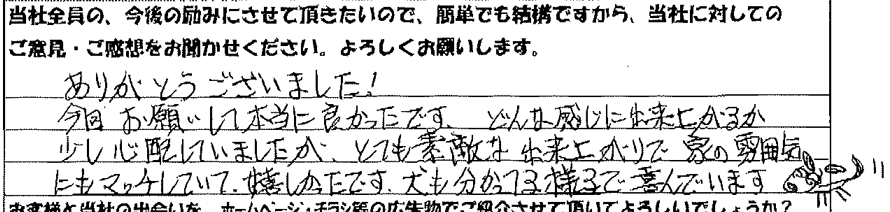 当社全員の、今後の励みにさせて頂きたいので、簡単でも結構ですから、当社に対しての
ご意見・ご感想をお聞かせください。よろしくお願いします。
ありがとうございました!
今回お願いして本当に良かったです。どんな感じに出来上がるか
少し心配していましたが、とても素敵な出来上がりで家の雰囲気
にもマッチしていて、嬉しかったです。犬も分かってる様子で喜んでいます
お客様と当社の出会いを、ホームページ・チラシ等の広告物でご紹介させて頂いてよろしいでしょうか?